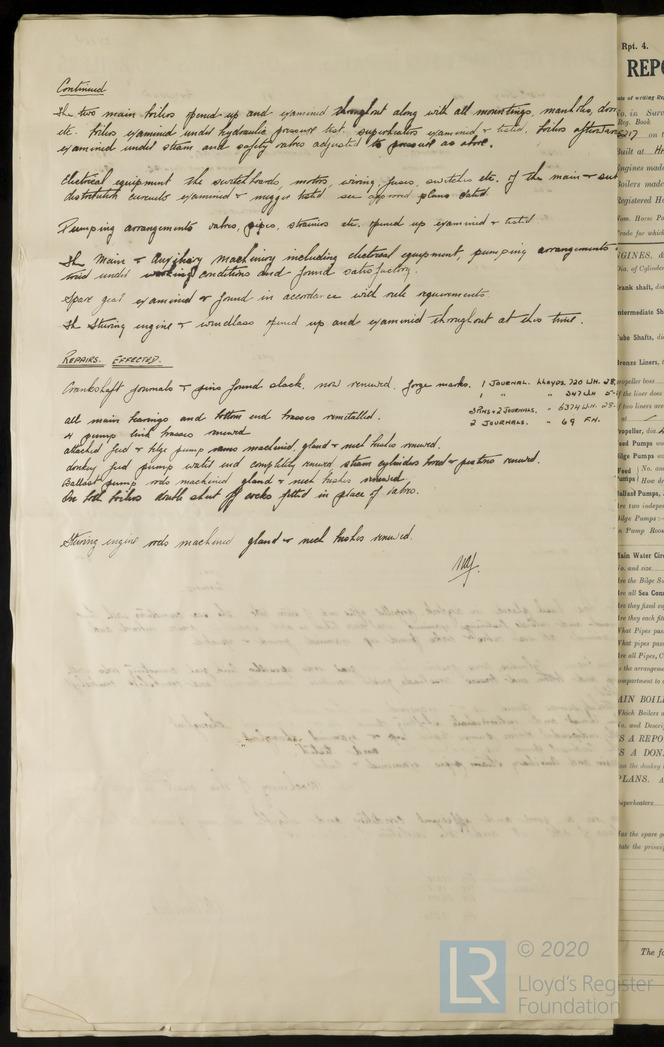 Continued
The two main boilers opened up and examined throughout along with all mountings, manholes, doors
etc. boilers examined under hydraulic pressure test, superheaters examined & tested, boilers afterwards
examined under steam and safety valves adjusted to pressure as above.
Electrical equipment the switchboards, motors, wiring, fuses, switches etc. of the main & sub
distribution circuits examined & megger tested see approved plans dated.
Pumping arrangements valves, pipes, strainers etc. opened up examined & tested
The Main & Auxiliary Machinery including electrical equipment, pumping arrangements
tried under working conditions and found satisfactory.
Spare gear examined & found in accordance with rule requirements.
The Steering engine & windlass opened up and examined throughout at this time.
REPAIRS. EFFECTED.
Crankshaft journals & pins found slack, now renewed, forge marks. 1 JOURNAL. LLOYDS. 720 W.H. 28.
1 " " 347 W.H. 5-
3 PINS & 2 JOURNALS. " 6374 W.H. 28.
all main bearings and bottom end brasses remetalled.
2 JOURNALS. " 69 F.H.
4 pump link brasses renewed
attached feed & bilge pump rams machined, gland & neck bushes renewed.
donkey feed pump water end completely renewed steam cylinders bored & pistons renewed.
Ballast pump rods machined gland & neck bushes renewed
On both boilers double shut off cocks fitted in place of valves.
Steering engine rods machined gland & neck bushes renewed.
Rpt. 4.
REPO
Date of writing Re
No. in Surv
Reg. Book
5217 on t
Built at
Engines made
Boilers made
Registered Ho
Nom. Horse Po
Trade for which
GINES, &
Dia. of Cylinder
Crank shaft, dia
Intermediate Sh
Tube Shafts, di
Bronze Liners, t
propeller boss
If the liner does
If two liners are
Propeller, dia.
Feed Pumps
Bilge Pumps
Feed No. an
Pumps How dr
Ballast Pumps,
Are two indepen
Bilge Pumps;—
In Pump Room
Main Water Circ
No. and size
Are the Bilge Su
Are all Sea Conn
Are they fixed su
Are they each fitt
What Pipes pass
What pipes pass
Are all Pipes, C
Is the arrangeme
compartment to a
MAIN BOIL
Which Boilers a
No. and Descri
IS A REPO
IS A DON
Can the donkey
PLANS. A
Superheaters
Has the spare ge
State the princip
The fo
LR
© 2020
Lloyd's Register
Foundation